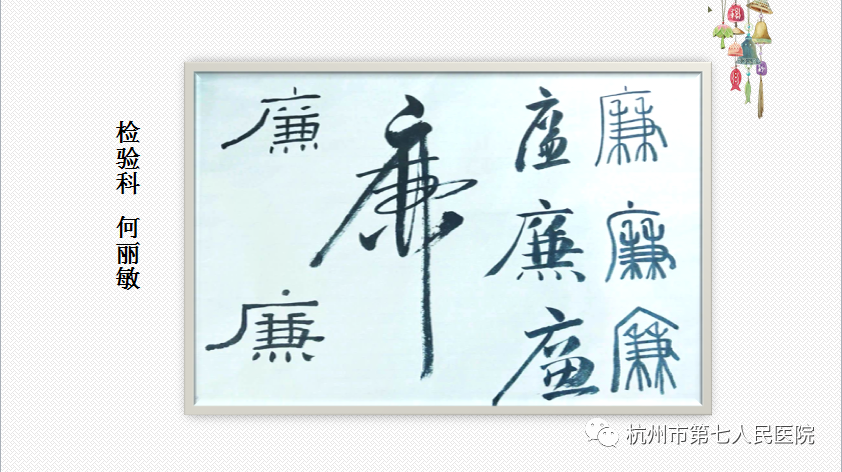 检验科 何丽敏
廉 廉 廉
廉
廉 廉
廉 廉
廉
杭州市第七人民医院